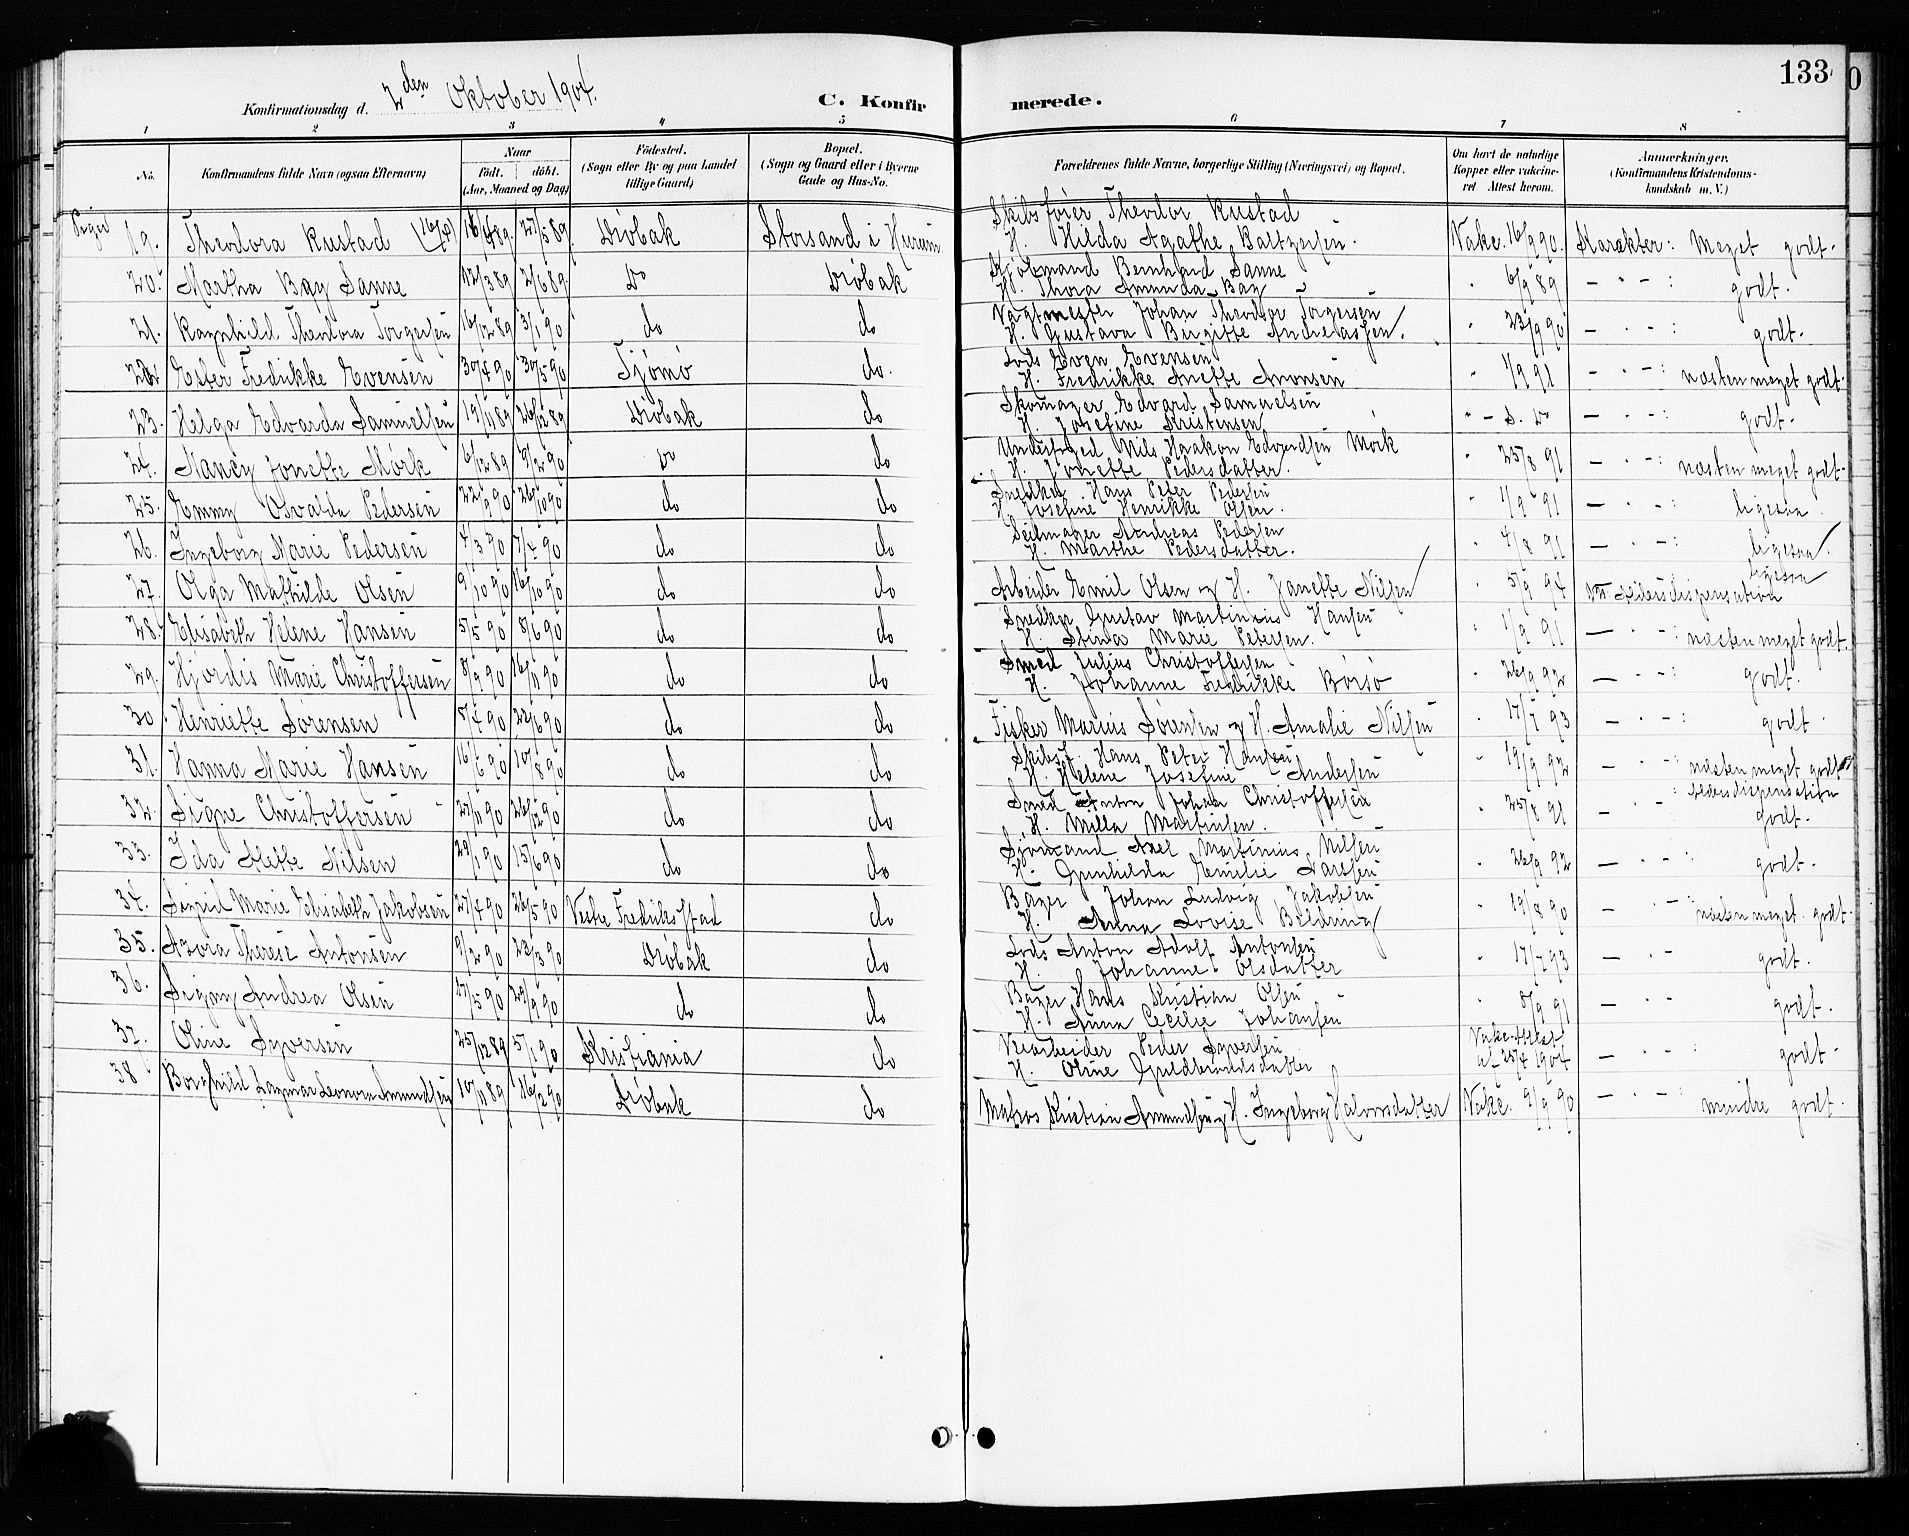 133
Konfirmationsdag d. 2den Oktober 1904.
C. Konfirmerede.
1 2 3 4 5 6 7 8
No. Konfirmandens fulde Navn (ogsaa Efternavn) Naar født. døbt. (Aar, Maaned og Dag) Fødested. (Sogn eller By og paa Landet tillige Gaard) Bopæl. (Sogn og Gaard eller i Byerne Gade og Hus-No. Forældrenes fulde Navne, borgerlige Stilling (Næringsvei) og Bopæl. Om havt de naturlige Kopper eller vakcineret. Attest herom. Anmærkninger. (Konfirmandens Kristendomskundskab m. V.)
Piger
19. Theodora Rustad 16/4 89. 27/5 89. Drøbak Storsand i Hurum Skibsfører Theodor Rustad
H. Hilda Agathe Baltzersen. Vakc. 16/9 90. Karakter: Meget godt.
20. Martha Bay Sanne 12/3 89 2/6 89 Do Drøbak Kjøbmand Bernhard Sanne
H. Thora Amunda Bay " 6/9 89 — " — : godt.
21. Ragnhild Theodora Torgersen 16/12 89 3/1 90 do do Vagtmester Johan Theodor Torgersen
H. Gustava Birgitte Andreassen. " 23/9 90 — " — : godt.
22 Ester Fredrikke Evensen 30/4 90 30/5 90 Tjømø do. Lods Even Evensen
H. Fredrikke Anette Aronsen " 1/9 91 — " — : næsten meget godt.
23. Helga Edvarda Samuelsen 19/11 89 26/12 89 Drøbak do Skomager Edvard Samuelsen
H. Josefine Kristensen " — S. D. — " — : godt.
24. Nancy Jonette Mørk 6/12 89 9/2 90 Do do Nils Haakon Edvardsen Mørk
H. Jonette Pedersdatter. " 25/8 91 — " — : næsten meget godt.
25. Emmy Osvalda Pedersen 22/9 90 26/10 90 do do Snedker Hans Peter Pedersen
H. Josefine Henrikke Olsen. " 1/9 91 — " — : ligesaa.
26. Ingeborg Marie Pedersen 4/3 90 7/4 90 do do Seilmager Andreas Pedersen
H. Marthe Pedersdatter. " 4/8 91 — " — : ligesaa
27. Olga Mathilde Olsen 9/10 90 16/10 90 do do Arbeider Emil Olsen og H. Janette Nilsen " 5/9 94 ligesaa
Aldersdispensation
28. Elisabeth Helene Hansen 5/5 90 8/6 90 do do Snedker Gustav Martinius Hansen
H. Stina Marie Petersen. " 1/9 91 — " — : næsten meget godt.
29. Hjørdis Marie Christoffersen 8/9 90 16/11 90 do do Smed Julius Christoffersen
H. Johanne Fredrikke Børsø " 26/9 92 — " — : godt.
30 Henriette Sørensen 5/4 90 22/6 90 do do Fisker Marius Sørensen og H. Amalie Nilsen " 17/7 93 — " — : godt.
31. Hanna Marie Hansen 16/6 90 10/8 90 do do Skibsf. Hans Peter Hansen
H. Helene Josefine Andersen " 19/9 92 — " — : næsten meget godt
32. Signe Christoffersen 27/11 90 26/12 90 do do Smed Anton Johan Christoffersen
H. Milla Martinsen. " 25/8 91 — " — : Aldersdispensation
godt.
33. Ida Mette Nilsen 29/1 90 15/6 90 do do Sjømand Axel Martinius Nilsen
H. Gunhilda Emilie Larsen " 26/9 92 — " — : godt.
34. Sigrid Marie Elisabeth Jakobsen 27/4 90 26/5 90 Vestre Fredriksstad do Bager Johan Ludvig Jakobsen
H. Anna Lovise Bildring " 19/8 90 — " — : næsten meget godt.
35. Azora Therese Antonsen 9/2 90 23/3 90 Drøbak do Lods Anton Adolf Antonsen
H. Johanne Olsdatter " 17/7 93 — " — godt.
36. Signy Andrea Olsen 17/5 90 29/9 90 do do Bager Hans Kristian Olsen
H. Anna Cecilie Johansen " 8/9 91 — " — godt.
37. Oline Syversen 25/12 89 5/1 90 Kristiania do Veiarbeider Peder Syversen
H. Oline Guldbrandsdatter Vakc. Attest
25/4 1904 — " — godt.
38 Borghild Dagmar Leonora Amundsen 10/11 89 16/2 90 Drøbak do Matros Kristian Amundsen og H. Ingeborg Halvorsdatter Vakc. 9/9 90 — " — : mindre godt.